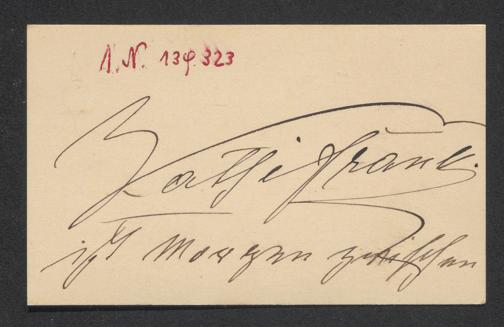 I.N. 139.323
Kathi Frank.
ist Morgen zwischen